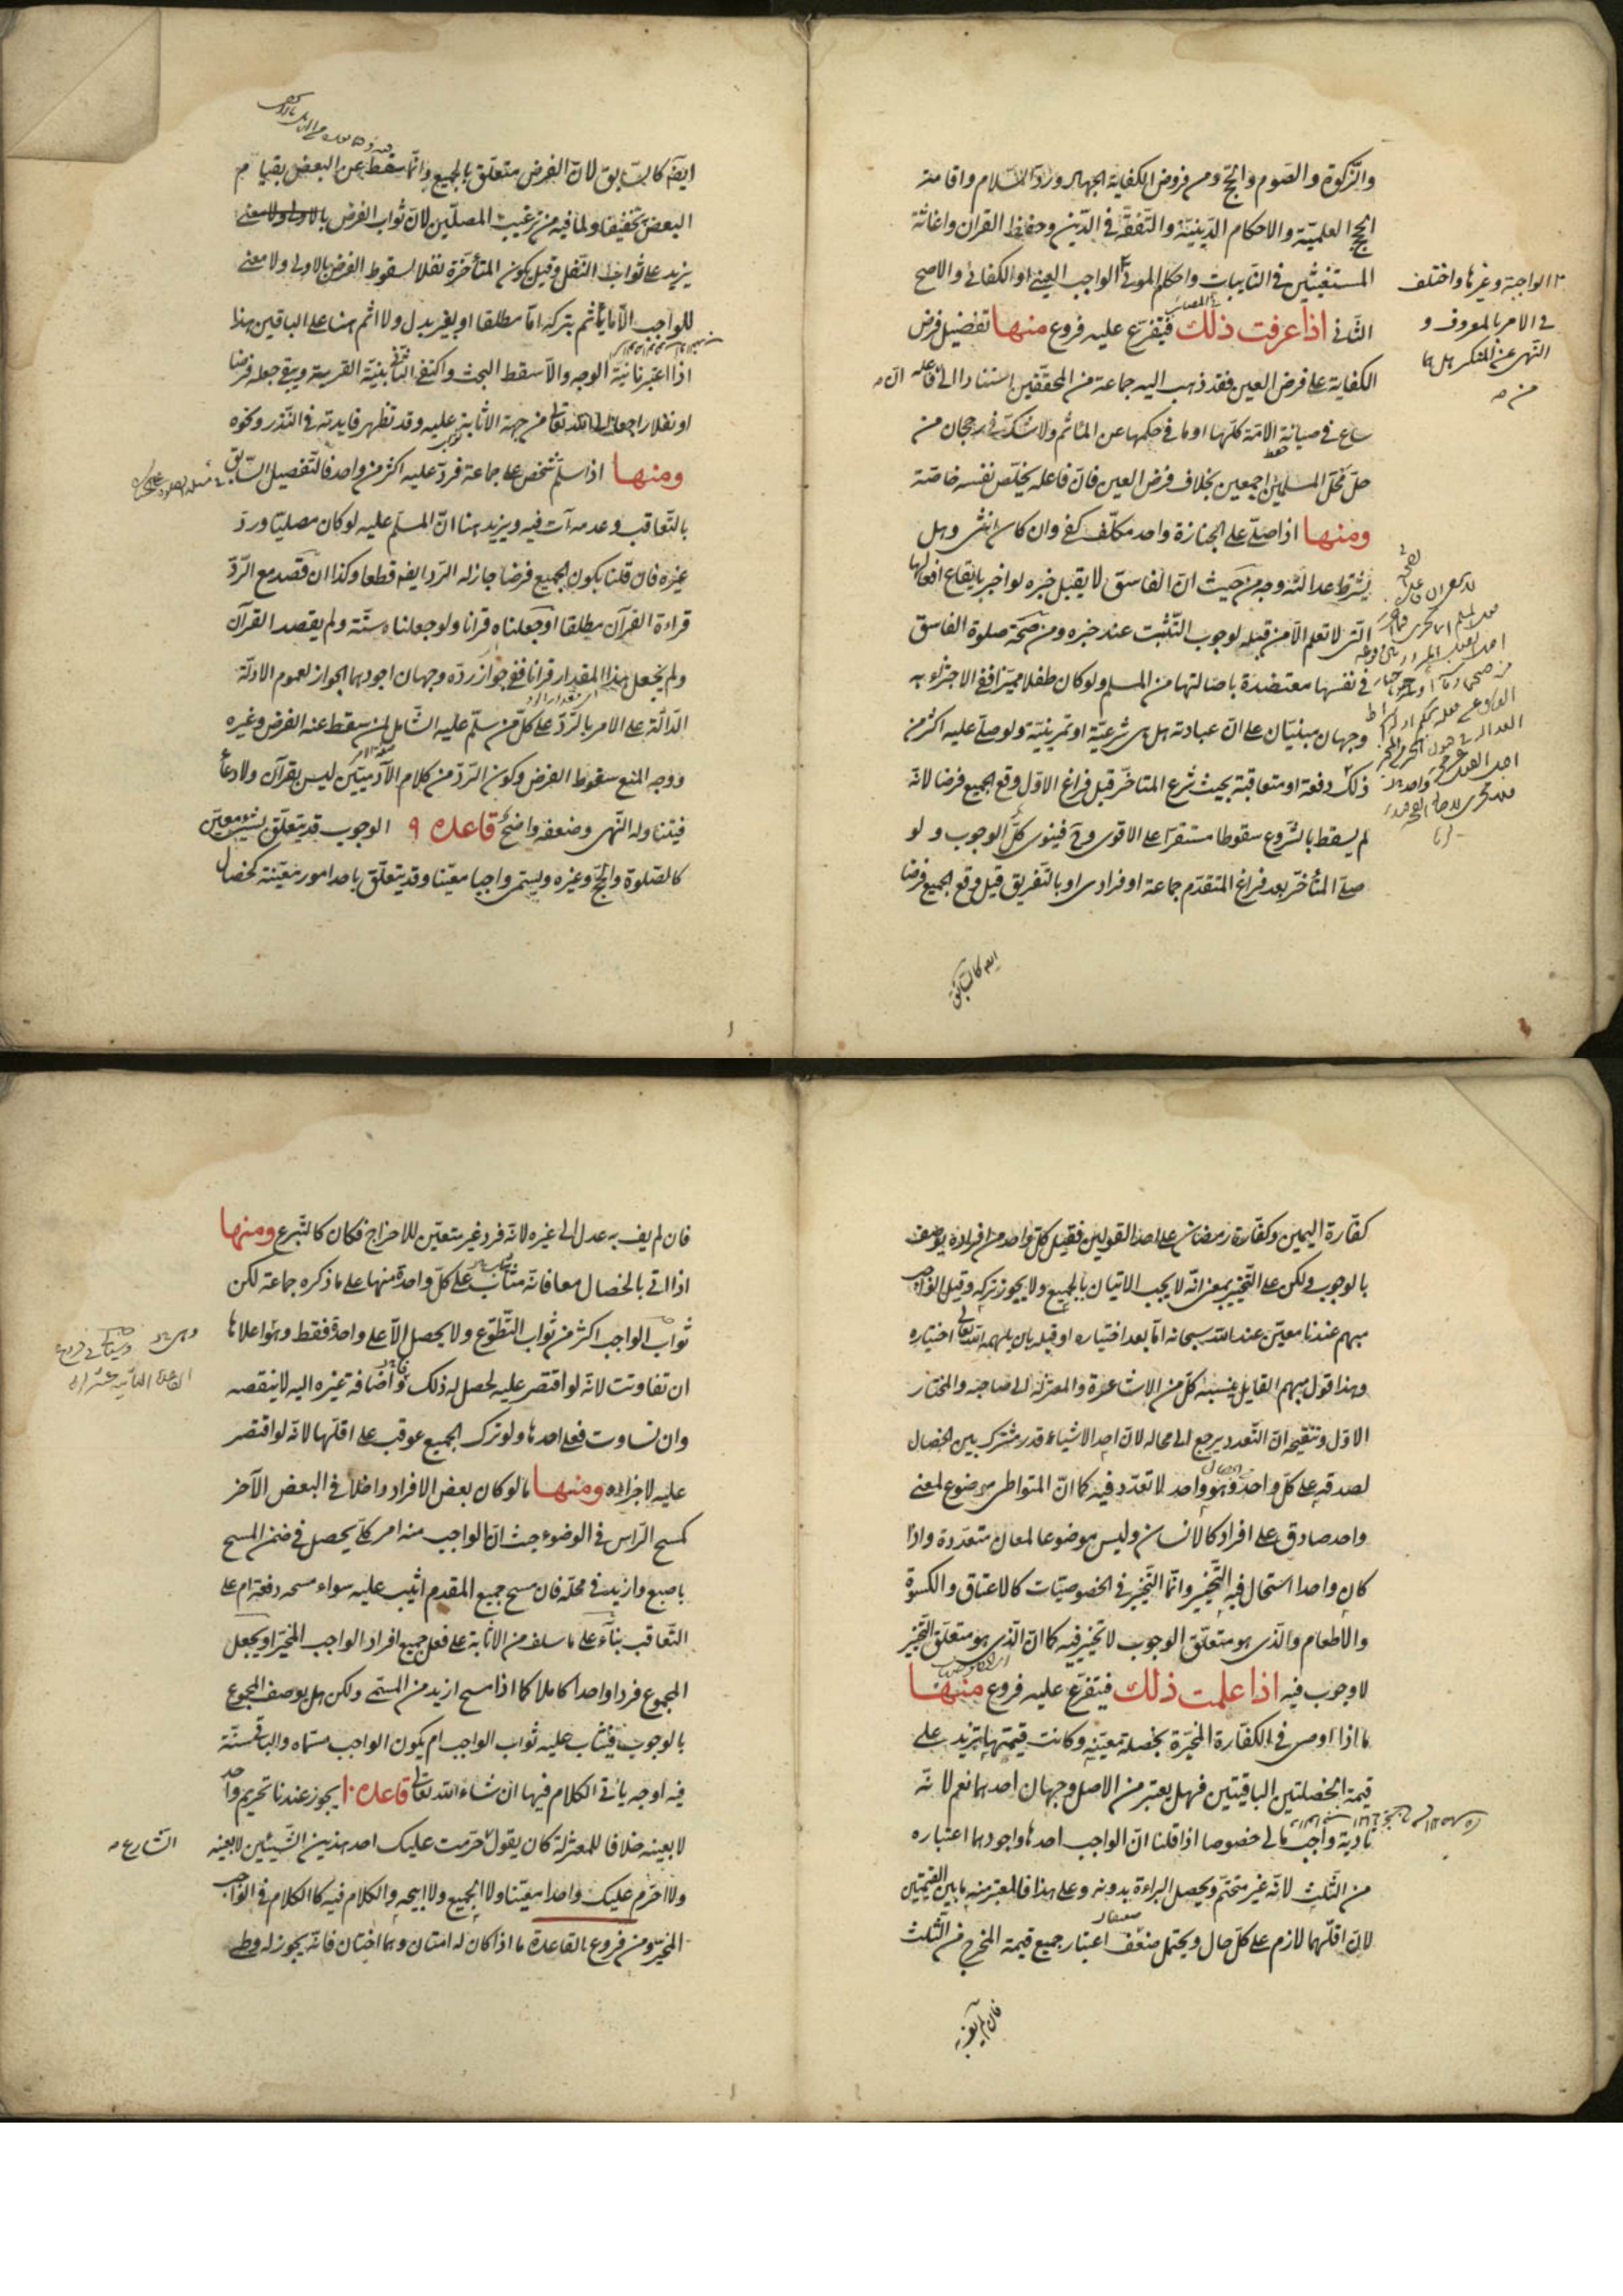 والزّكوة والصّوم والحجّ ومن فروض الكفاية الجهاد وردّ السّلام واقامة
الحجج العلميّة والاحكام الدّينيّة والتّفقّه في الدّين وحفظ القرآن واغاثة
المستغيثين في النّايبات واحكام الموتى الواجب العيني او الكفائي والاصح
الواجبة وغيرها واختلف
في الامر بالمعروف و
النّهي عن المنكر هل هما
من
الثّاني اذا عرفت ذلك فيتفرّع عليه فروع منها تفضيل فرض
الكفاية على فرض العين فقد ذهب اليه جماعة من المحقّقين استنادا الى انّ فاعله
ساع في صيانة الامّة كلّها او ما في حكمها عن المأثم ولا شكّ في رجحان من
حلّ محلّ المسلمين اجمعين بخلاف فرض العين فانّ فاعله يخلّص نفسه خاصّة
ومنها اذا صلّى على الجنازة واحد مكلّف كفى وان كان انثى وهل
يشترط عدالته وجه من حيث انّ الفاسق لا يقبل خبره لو اخبر بايقاع افعالها
الّتي لا تعلم الّا من قبله لوجوب التّثبّت عند خبره ومن صحّة صلوة الفاسق
في نفسها معتضدة باصالتها من المسلم ولو كان طفلا مميّزا ففي الاجتزاء به
وجهان مبنيّان على انّ عبادته هل هي شرعيّة او تمرينيّة ولو صلّى عليه اكثر من
ذلك دفعة او متعاقبة بحيث شرع المتأخّر قبل فراغ الاوّل وقع الجميع فرضا لانّه
لم يسقط بالشّروع سقوطا مستقرّا على الاقوى وح فينوي كلّ الوجوب ولو
صلّى المتأخّر بعد فراغ المتقدّم جماعة او فرادى او بالتّفريق قيل وقع الجميع فرضا
ايضا كالسّابق
ايضا كالسّابق لانّ الفرض متعلّق بالجميع وانّما سقط عن البعض بقيام
البعض تخفيفا ولما فيه من ترغيب المصلّين لانّ ثواب الفرض
يزيد على ثواب النّفل وقيل يكون المتأخّرة نفلا لسقوط الفرض بالاولى ولا معنى
للواجب الّا ما يأثم بتركه امّا مطلقا او بغير بدل ولا اثم هنا على الباقين هذا
اذا اعتبرنا نيّة الوجه والّا سقط البحث واكتفى الثّاني بنيّة القربة ويبقى جعله فرضا
او نفلا راجعا الى الله تعالى من جهة الاثابة عليه وقد تظهر فايدته في النّذر ونحوه
ومنها اذا سلّم شخص على جماعة فردّ عليه اكثر من واحد فالتّفصيل السّابق
بالتّعاقب وعدمه آت فيه ويزيد هنا انّ المسلّم عليه لو كان مصلّيا وردّ
غيره فان قلنا بكون الجميع فرضا جاز له الرّد ايضا قطعا وكذا ان قصد مع الرّدّ
قراءة القرآن مطلقا او جعلناه قرانا ولو جعلناه سنّة ولم يقصد القرآن
ولم يجعل هذا المقدار قرانا ففي جواز ردّه وجهان اجودهما الجواز لعموم الادلّة
الدّالّة على الامر بالرّدّ على كلّ من سلّم عليه الشّامل لمن سقط عنه الفرض وغيره
ووجه المنع سقوط الفرض وكون الرّدّ من كلام الآدميّين ليس بقرآن ولا دعاء
فيتناوله النّهي وضعفه واضح قاعده ٩ الوجوب قد يتعلّق بشيء معيّن
كالصّلوة والحجّ وغيره ويسمّى واجبا معيّنا وقد يتعلّق باحد امور معيّنة كخصال
كفّارة اليمين وكفّارة رمضان على احد القولين فقيل كلّ واحد من افراده يوصف
بالوجوب ولكن على التّخيير بمعنى انّه لا يجب الاتيان بالجميع ولا يجوز تركه وقيل الواجب
مبهم عندنا معيّن عند الله سبحانه امّا بعد اختياره او قبله بان يلهمه الله تعالى اختياره
وهذا قول مبهم القايل ينسبه كلّ من الاشاعرة والمعتزلة الى صاحبه والمختار
الاوّل وتنقيحه انّ التّعدد يرجع الى محاله لانّ احد الاشياء قدر مشترك بين الخصال
لصدقه على كلّ واحد وهو واحد لا تعدّد فيه كما انّ المتواطي موضوع لمعنى
واحد صادق على افراد كالانسان وليس موضوعا لمعان متعدّدة واذا
كان واحدا استحال فيه التّخيير وانّما التّخيير في الخصوصيّات كالاعتاق والكسوة
والاطعام والّذي هو متعلّق الوجوب لا تخيير فيه كما انّ الّذي هو متعلّق التّخيير
لا وجوب فيه اذا علمت ذلك فيتفرّع عليه فروع منها
ما اذا اوصى في الكفّارة المخيّرة بخصلة معيّنة وكانت قيمتها تزيد على
قيمة الخصلتين الباقيتين فهل يعتبر من الاصل وجهان احدهما نعم لانّه
تأدية واجب مالي خصوصا اذا قلنا انّ الواجب احدها واجودهما اعتباره
من الثّلث لانّه غير متحتّم ويحصل البراءة بدونه وعلى هذا فالمعتبر منه ما بين القيمتين
لانّ اقلّهما لازم على كلّ حال ويحتمل ضعف اعتبار جميع قيمة المخرج من الثّلث
فان لم يف به
فان لم يف به عدل الى غيره لانّه فرد غير متعيّن للاخراج فكان كالتّبرّع ومنها
اذا اتى بالخصال معا فانّه يثاب على كلّ واحدة منها على ما ذكره جماعة لكن
ثواب الواجب اكثر من ثواب التّطوّع ولا يحصل الّا على واحدة فقط وهو اعلاها
ان تفاوتت لانّه لو اقتصر عليه لحصل له ذلك واضافة غيره اليه لا ينقصه
وان تساوت فعلى احدها ولو ترك الجميع عوقب على اقلّها لانّه لو اقتصر
عليه لاجزاه ومنها ما لو كان بعض الافراد داخلا في البعض الآخر
كمسح الرّاس في الوضوء حيث انّ الواجب منه امر كلّي يحصل في ضمن المسح
باصبع وازيد في محلّه فان مسح جميع المقدم اثيب عليه سواء مسحه دفعة ام على
التّعاقب بناء على ما سلف من الاثابة على فعل جميع افراد الواجب المخيّر او يجعل
المجموع فردا واحدا كاملا كما اذا مسح ازيد من المسمّى ولكن هل يوصف المجموع
بالوجوب فيثاب عليه ثواب الواجب ام يكون الواجب مسمّاه والباقي سنّة
فيه اوجه يأتي الكلام فيها ان شاء الله تعالى قاعده ١٠ يجوز عندنا تحريم واحد
لا بعينه خلافا للمعتزلة كان يقول حرّمت عليك احد هذين الشّيئين لا بعينه
الشّارع
ولا احرّم عليك واحدا معيّنا ولا الجميع ولا ابيحه والكلام فيه كالكلام في الواجب
المخيّر ومن فروع القاعدة ما اذا كان له امتان وهما اختان فانّه يجوز له وطي